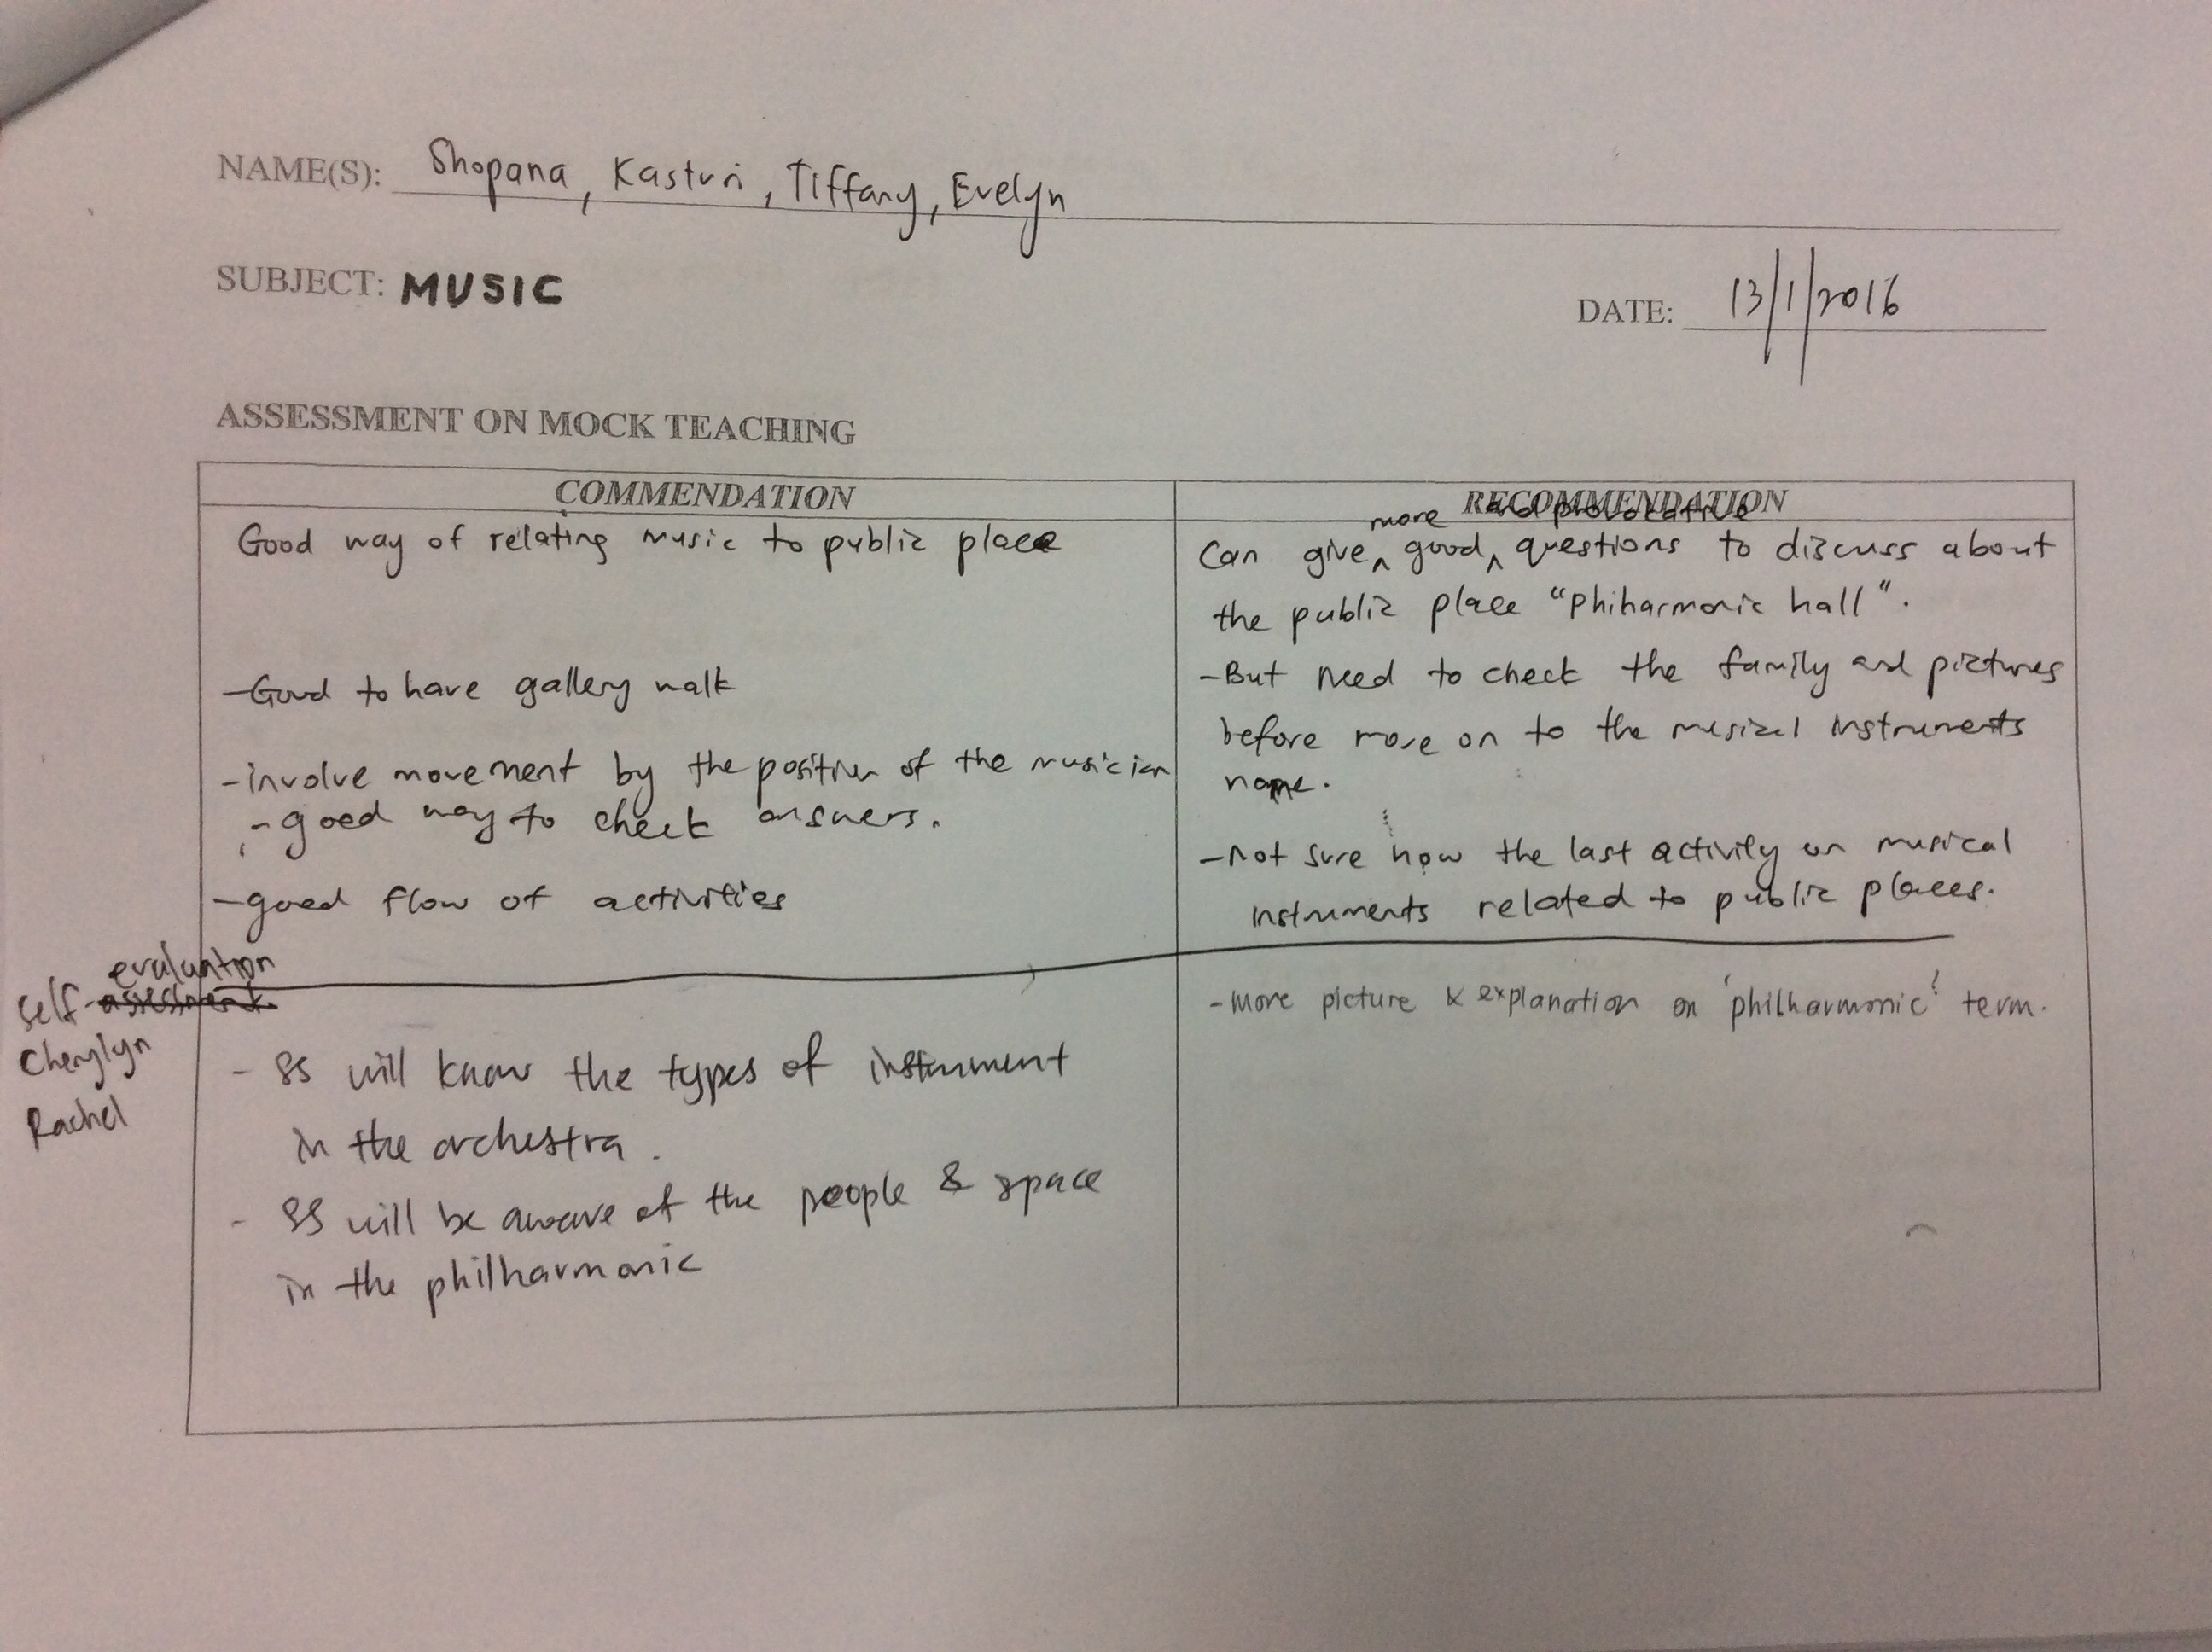 NAME(S): Shopana, Kasturi, Tiffany, Evelyn
SUBJECT: MUSIC
DATE: 13/1/2016
ASSESSMENT ON MOCK TEACHING
COMMENDATION
Good way of relating music to public place
-Good to have gallery walk
-involve movement by the position of the musician
-good way to check answers.
-good flow of activities
RECOMMENDATION
more and provocative
Can give ^ good ^ questions to discuss about
the public place "Phiharmonic hall".
-But need to check the family and pictures
before move on to the musical instruments
name.
-Not sure how the last activity on musical
instruments related to public places.
evaluation
Self-assessment
Cherylyn
Rachel
- SS will know the types of instrument
in the orchestra.
- SS will be aware of the people & space
in the philharmonic
-more picture & explanation on 'philharmonic' term.